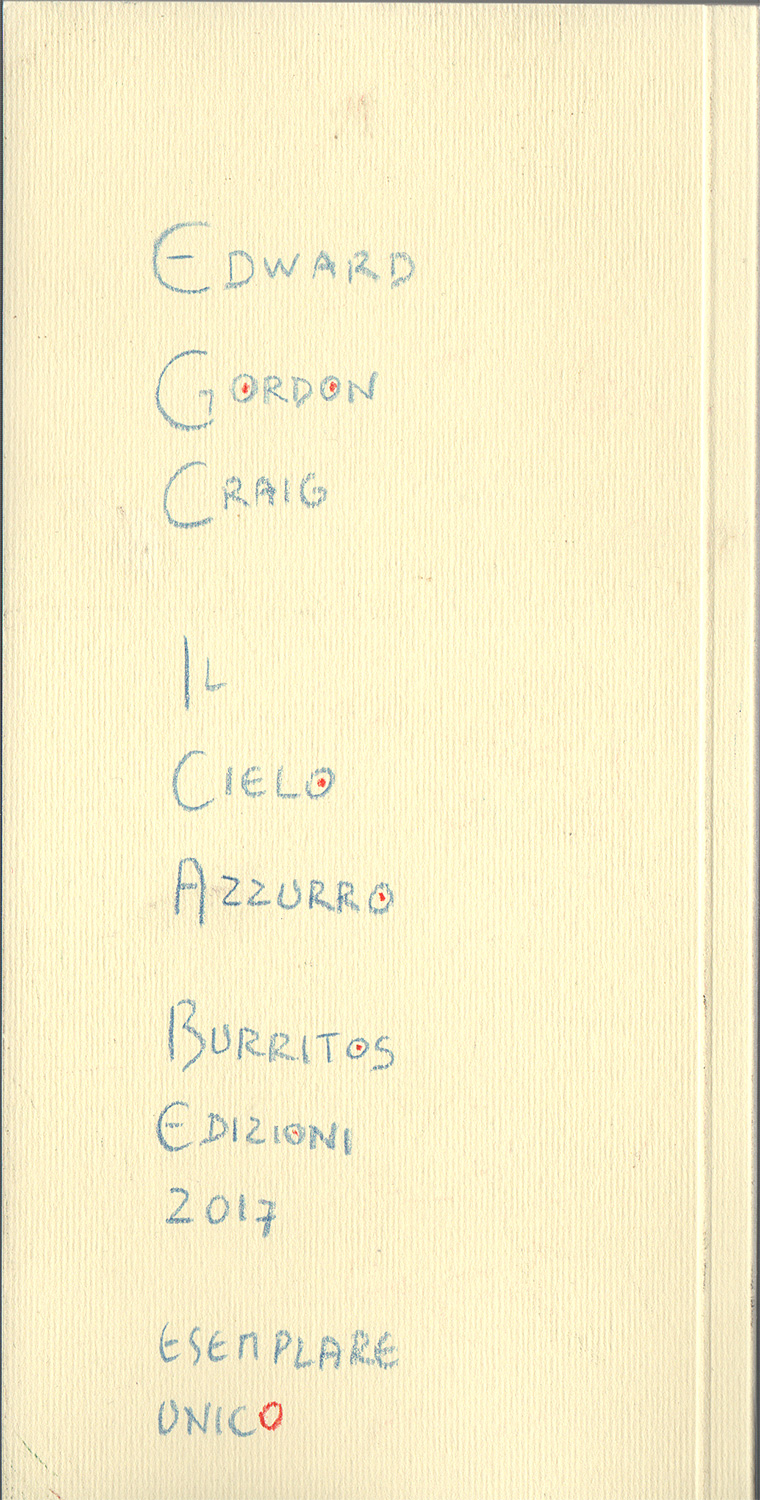 EDWARD
GORDON
CRAIG
IL
CIELO
AZZURRO
BURRITOS
EDIZIONI
2017
ESEMPLARE
UNICO